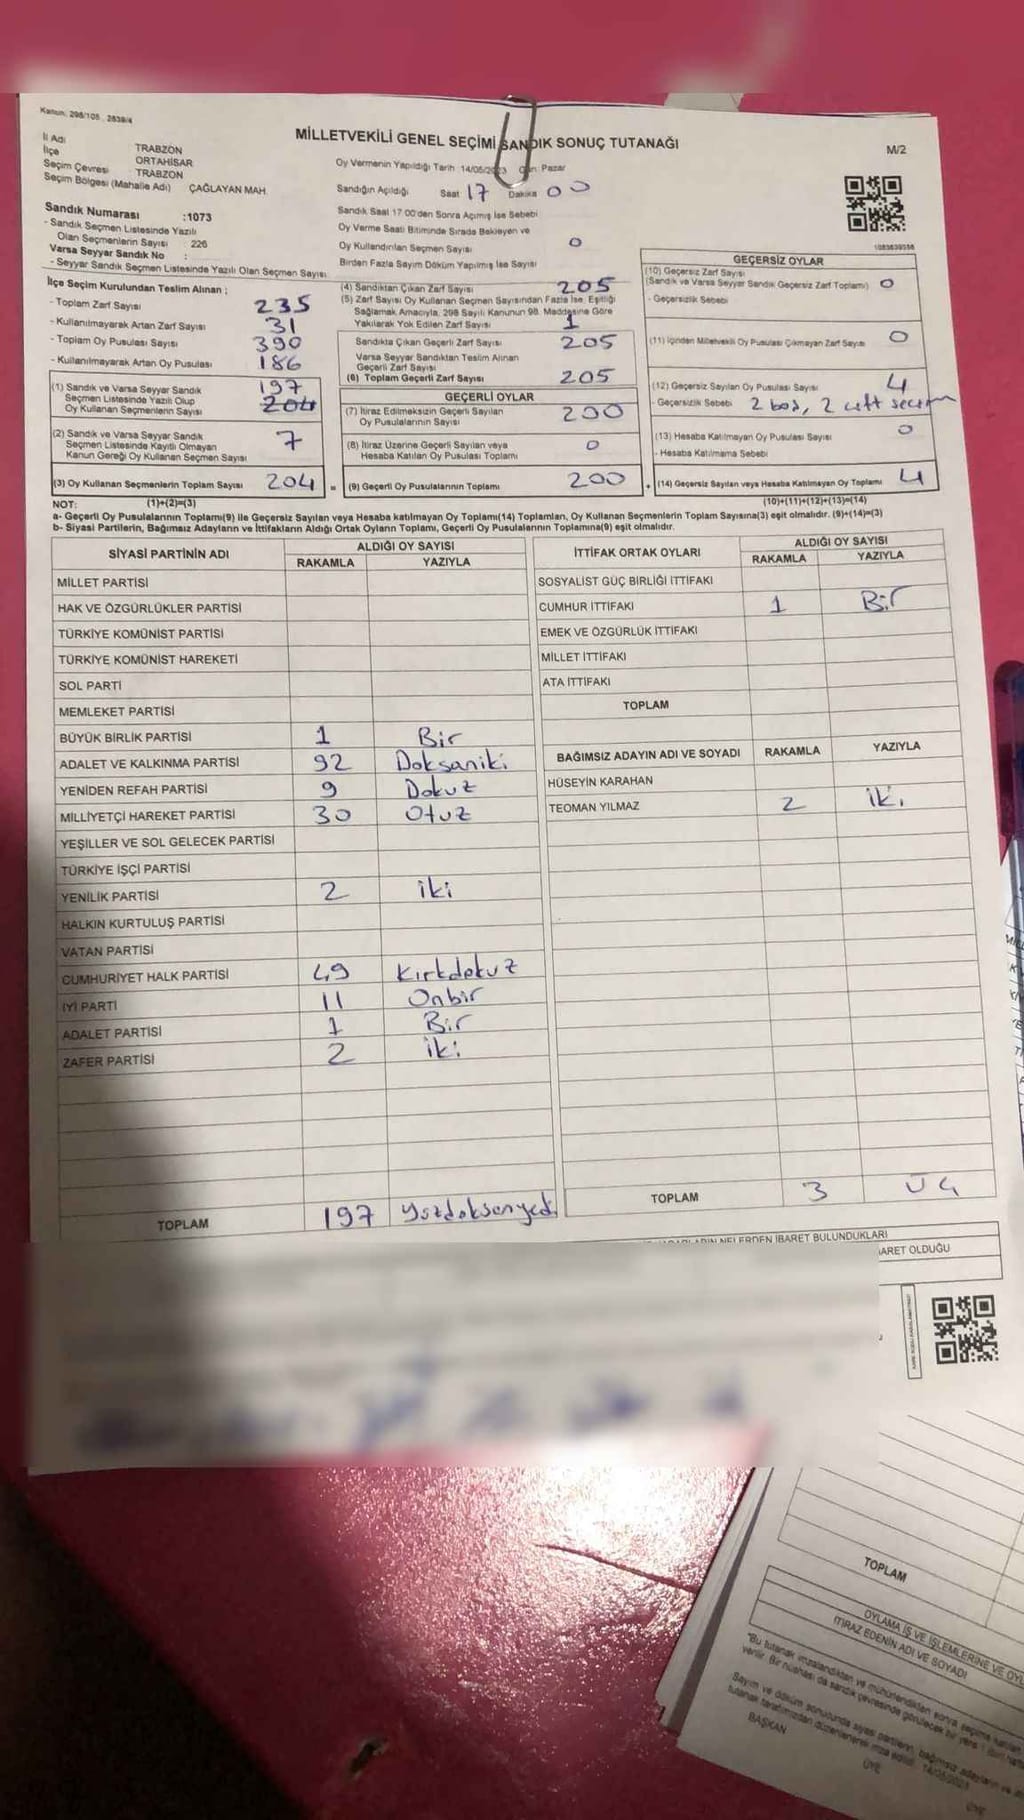 Kanun: 298/105 , 2839/4
MİLLETVEKİLİ GENEL SEÇİMİ SANDIK SONUÇ TUTANAĞI
M/2
İl Adı TRABZON
İlçe ORTAHİSAR
Seçim Çevresi TRABZON
Seçim Bölgesi (Mahalle Adı) ÇAĞLAYAN MAH.
Oy Vermenin Yapıldığı Tarih 14/05/2023 Gün Pazar
Sandığın Açıldığı Saat 17 Dakika 00
Sandık Saat 17 00'den Sonra Açımış İse Sebebi
Oy Verme Saati Bitiminde Sırada Bekleyen ve
Oy Kullandırılan Seçmen Sayısı 0
Birden Fazla Sayım Döküm Yapılmış İse Sayısı
Sandık Numarası :1073
- Sandık Seçmen Listesinde Yazılı
Olan Seçmenlerin Sayısı : 226
Varsa Seyyar Sandık No :
- Seyyar Sandık Seçmen Listesinde Yazılı Olan Seçmen Sayısı
1083639358
İlçe Seçim Kurulundan Teslim Alınan ;
- Toplam Zarf Sayısı 235
- Kullanılmayarak Artan Zarf Sayısı 31
- Toplam Oy Pusulası Sayısı 390
- Kullanılmayarak Artan Oy Pusulası 186
(1) Sandık ve Varsa Seyyar Sandık 197
Seçmen Listesinde Yazılı Olup 204
Oy Kullanan Seçmenlerin Sayısı
(2) Sandık ve Varsa Seyyar Sandık
Seçmen Listesinde Kayıtlı Olmayan 7
Kanun Gereği Oy Kullanan Seçmen Sayısı
(3) Oy Kullanan Seçmenlerin Toplam Sayısı 204 =
(4) Sandıktan Çıkan Zarf Sayısı 205
(5) Zarf Sayısı Oy Kullanan Seçmen Sayısından Fazla İse, Eşitliği
Sağlamak Amacıyla, 298 Sayılı Kanunun 98. Maddesine Göre
Yakılarak Yok Edilen Zarf Sayısı 1
Sandıkta Çıkan Geçerli Zarf Sayısı 205
Varsa Seyyar Sandıktan Teslim Alınan
Geçerli Zarf Sayısı
(6) Toplam Geçerli Zarf Sayısı 205
GEÇERLİ OYLAR
(7) İtiraz Edilmeksizin Geçerli Sayılan 200
Oy Pusulalarının Sayısı
(8) İtiraz Üzerine Geçerli Sayılan veya 0
Hesaba Katılan Oy Pusulası Toplamı
(9) Geçerli Oy Pusulalarının Toplamı 200 +
GEÇERSİZ OYLAR
(10) Geçersiz Zarf Sayısı
(Sandık ve Varsa Seyyar Sandık Geçersiz Zarf Toplamı) 0
- Geçersizlik Sebebi
(11) İçinden Milletvekili Oy Pusulası Çıkmayan Zarf Sayısı 0
(12) Geçersiz Sayılan Oy Pusulası Sayısı 4
- Geçersizlik Sebebi 2 boş, 2 çift seçim
(13) Hesaba Katılmayan Oy Pusulası Sayısı 0
- Hesaba Katılmama Sebebi
(14) Geçersiz Sayılan veya Hesaba Katılmayan Oy Toplamı 4
NOT: (1)+(2)=(3) (10)+(11)+(12)+(13)=(14)
a- Geçerli Oy Pusulalarının Toplamı(9) ile Geçersiz Sayılan veya Hesaba katılmayan Oy Toplamı(14) Toplamları, Oy Kullanan Seçmenlerin Toplam Sayısına(3) eşit olmalıdır. (9)+(14)=(3)
b- Siyasi Partilerin, Bağımsız Adayların ve İttifakların Aldığı Ortak Oyların Toplamı, Geçerli Oy Pusulalarının Toplamına(9) eşit olmalıdır.
SİYASİ PARTİNİN ADI ALDIĞI OY SAYISI
RAKAMLA YAZIYLA
MİLLET PARTİSİ
HAK VE ÖZGÜRLÜKLER PARTİSİ
TÜRKİYE KOMÜNİST PARTİSİ
TÜRKİYE KOMÜNİST HAREKETİ
SOL PARTİ
MEMLEKET PARTİSİ
BÜYÜK BİRLİK PARTİSİ 1 Bir
ADALET VE KALKINMA PARTİSİ 92 Doksaniki
YENİDEN REFAH PARTİSİ 9 Dokuz
MİLLİYETÇİ HAREKET PARTİSİ 30 Otuz
YEŞİLLER VE SOL GELECEK PARTİSİ
TÜRKİYE İŞÇİ PARTİSİ
YENİLİK PARTİSİ 2 iki
HALKIN KURTULUŞ PARTİSİ
VATAN PARTİSİ
CUMHURİYET HALK PARTİSİ 49 Kırkdokuz
İYİ PARTİ 11 Onbir
ADALET PARTİSİ 1 Bir
ZAFER PARTİSİ 2 iki
TOPLAM 197 Yüzdoksanyedi
İTTİFAK ORTAK OYLARI ALDIĞI OY SAYISI
RAKAMLA YAZIYLA
SOSYALİST GÜÇ BİRLİĞİ İTTİFAKI
CUMHUR İTTİFAKI 1 Bir
EMEK VE ÖZGÜRLÜK İTTİFAKI
MİLLET İTTİFAKI
ATA İTTİFAKI
TOPLAM
BAĞIMSIZ ADAYIN ADI VE SOYADI RAKAMLA YAZIYLA
HÜSEYİN KARAHAN
TEOMAN YILMAZ 2 iki
TOPLAM 3 Üç
NELERDEN İBARET BULUNDUKLARI
OLDUĞU
TOPLAM
OYLAMA İŞ VE İŞLEMLERİNE VE
İTİRAZ EDENİN ADI VE SOYADI
"Bu tutanak imzalandıktan ve mühürlendikten sonra
verilir. Bir nüshası da sandık çevresinde görülecek bir yere
Sayım ve döküm sonucunda siyasi partilerin, bağımsız adayların
tutanak tarafımızdan düzenlenerek imza edildi. 14/05/2023
BAŞKAN ÜYE ÜYE